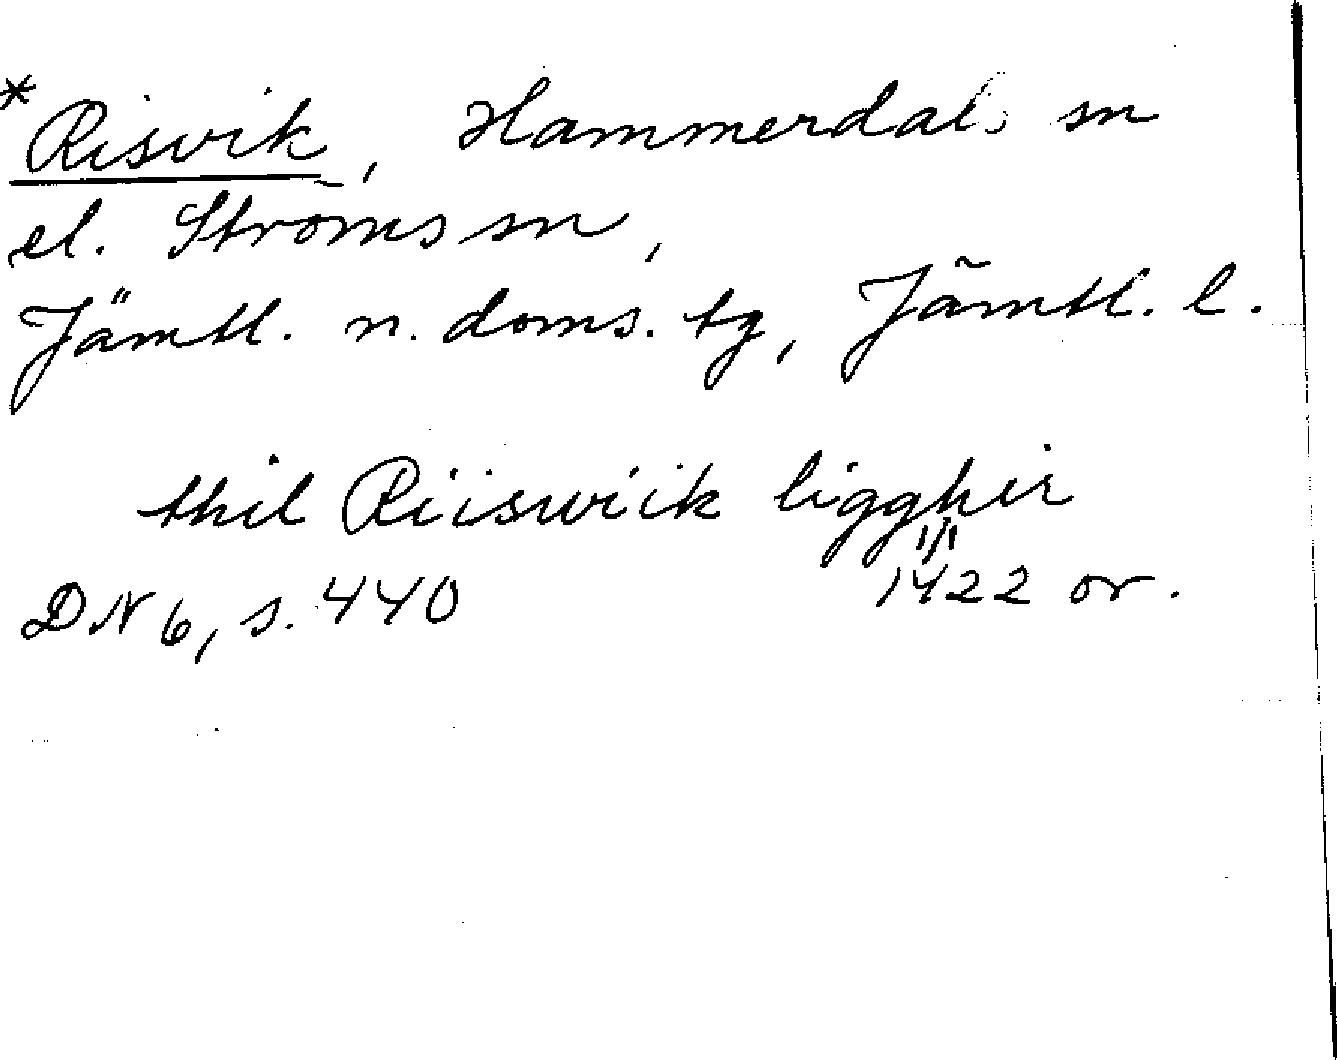 * Risvik, Hammerdals sn
el. Ströms sn,
Jämtl. n. doms. tg, Jämtl. l.
thil Riiswiik ligghir
1/1
DN 6, s. 440 1422 or.